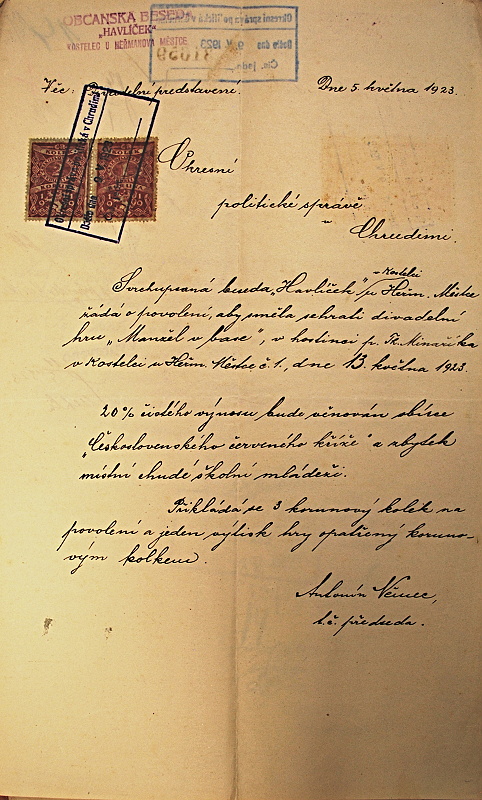 OBČANSKÁ BESEDA
„HAVLÍČEK"
KOSTELEC U HEŘMANOVA MĚSTCE
Věc: Divadelní představení.
Dne 5. května 1923.
Okresní
politické správě
v Chrudimi.
Svrchupsaná beseda „Havlíček" v Kostelci u Heřm. Městce
žádá o povolení, aby směla sehrati divadelní
hru „Manžel v base", v hostinci p. Fr. Minaříka
v Kostelci u Heřm. Městce č. 1., dne 13. května 1923.
20% čistého výnosu bude věnován sbírce
„Československého červeného kříže" a zbytek
místní chudé školní mládeži.
Přikládá se 3 korunový kolek na
povolení a jeden výtisk hry opatřený koruno-
vým kolkem.
Antonín Němec,
t.č. předseda.